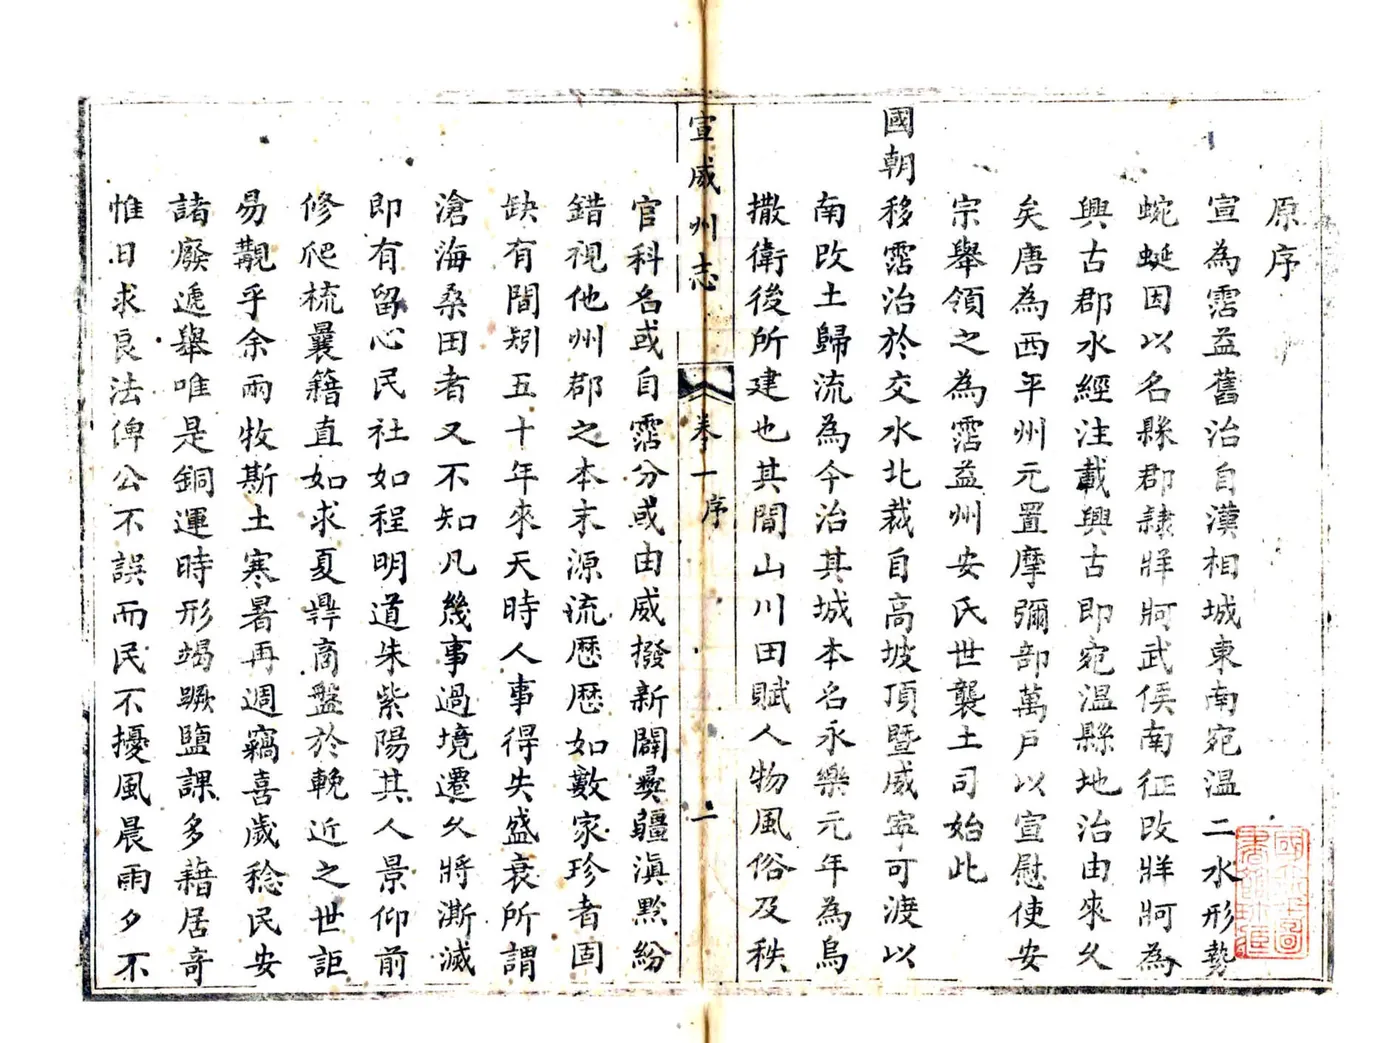 原序
宣為霑益舊治自漢相城東南宛溫二水形勢
蜿蜒因以名縣郡隸牂牁武侯南征改牂牁為
興古郡水經注載興古即宛溫縣地治由來久
矣唐為西平州元置摩彌部萬戶以宣慰使安
宗舉領之為霑益州安氏世襲土司始此
國朝移霑治於交水北裁自高坡頂暨威寧可渡以
南改土歸流為今治其城本名永樂元年為烏
撒衛後所建也其間山川田賦人物風俗及秩
宣威州志
卷一序
二
官科名或自霑分或由威撥新闢彛疆滇黔紛
錯視他州郡之本末源流歷歷如數家珍者固
缺有間矧五十年來天時人事得失盛衰所謂
滄海桑田者又不知凡幾事過境遷久將澌滅
即有留心民社如程明道朱紫陽其人景仰前
修爬梳曩籍直如求夏鼎商盤於輓近之世詎
易覯乎余兩牧斯土寒暑再週竊喜歲稔民安
諸廢遞舉唯是銅運時形竭蹶鹽課多藉居奇
惟日求良法俾公不誤而民不擾風晨雨夕不